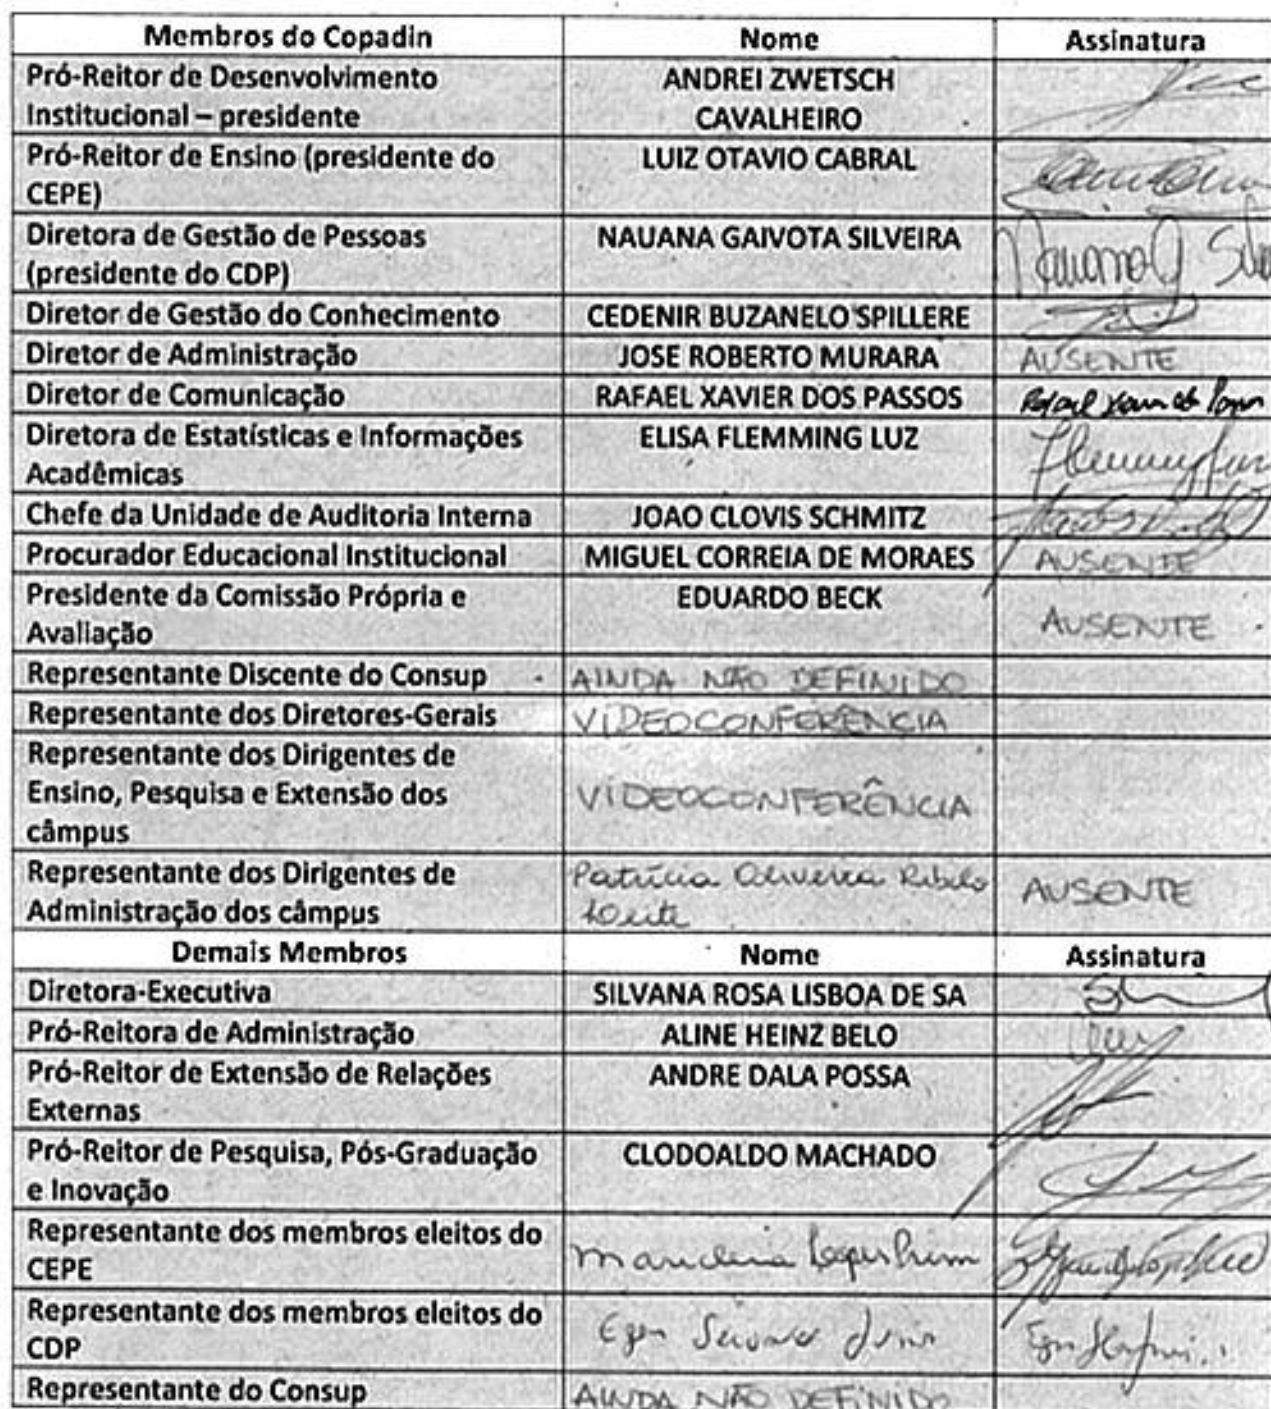 Membros do Copadin Nome Assinatura
Pró-Reitor de Desenvolvimento ANDREI ZWETSCH
Institucional – presidente CAVALHEIRO
Pró-Reitor de Ensino (presidente do LUIZ OTAVIO CABRAL
CEPE)
Diretora de Gestão de Pessoas NAUANA GAIVOTA SILVEIRA
(presidente do CDP)
Diretor de Gestão do Conhecimento CEDENIR BUZANELO SPILLERE
Diretor de Administração JOSE ROBERTO MURARA AUSENTE
Diretor de Comunicação RAFAEL XAVIER DOS PASSOS
Diretora de Estatísticas e Informações ELISA FLEMMING LUZ
Acadêmicas
Chefe da Unidade de Auditoria Interna JOAO CLOVIS SCHMITZ
Procurador Educacional Institucional MIGUEL CORREIA DE MORAES AUSENTE
Presidente da Comissão Própria e EDUARDO BECK
Avaliação AUSENTE
Representante Discente do Consup AINDA NÃO DEFINIDO
Representante dos Diretores-Gerais VIDEOCONFERÊNCIA
Representante dos Dirigentes de
Ensino, Pesquisa e Extensão dos VIDEOCONFERÊNCIA
câmpus
Representante dos Dirigentes de Patrícia Oliveira AUSENTE
Administração dos câmpus Leite
Demais Membros Nome Assinatura
Diretora-Executiva SILVANA ROSA LISBOA DE SA
Pró-Reitora de Administração ALINE HEINZ BELO
Pró-Reitor de Extensão de Relações ANDRE DALA POSSA
Externas
Pró-Reitor de Pesquisa, Pós-Graduação CLODOALDO MACHADO
e Inovação
Representante dos membros eleitos do
CEPE
Representante dos membros eleitos do
CDP
Representante do Consup AINDA NÃO DEFINIDO